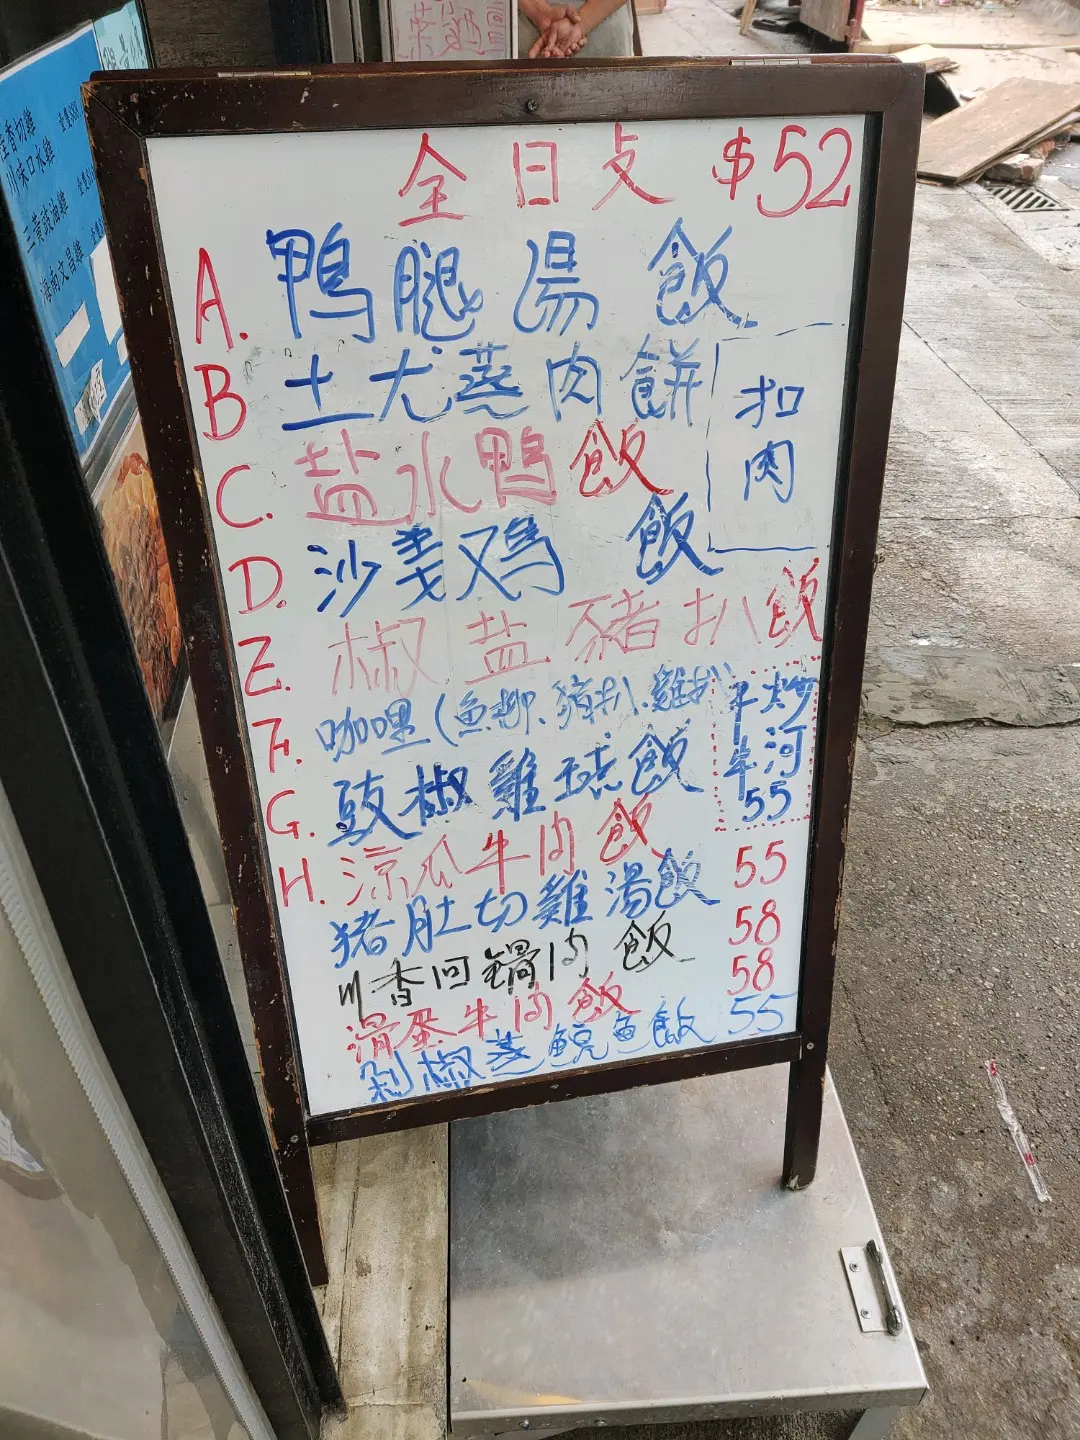 全日支 $52
A. 鴨腿湯 飯
B 土尤蒸肉餅
扣肉
C. 盐水鴨飯
D. 沙姜鸡 飯
E. 椒盐豬扒飯
F. 咖哩(魚柳、豬扒、雞扒)
干炒
牛河
55
G. 豉椒雞球飯
H. 涼瓜牛肉飯
猪肚切雞湯飯 55
川香回鍋肉 飯 58
滑蛋牛肉飯 58
剁椒蒸鯇魚飯 55
川味口水雞
三黃豉油雞
海南文昌雞